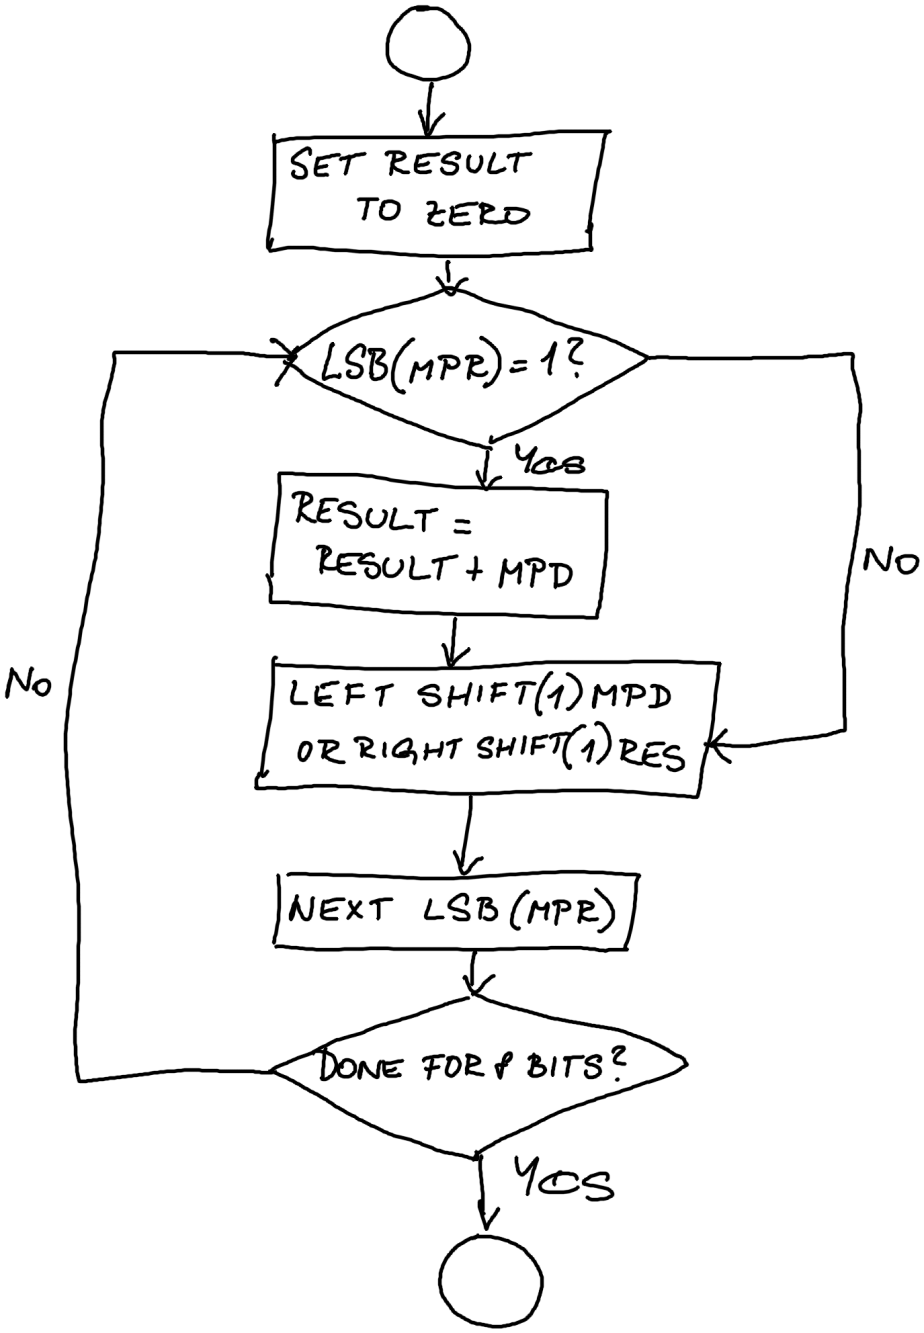 SET RESULT
TO ZERO
LSB(MPR)=1?
Yes
RESULT =
RESULT + MPD
NO
LEFT SHIFT(1) MPD
OR RIGHT SHIFT(1) RES
No
NEXT LSB (MPR)
DONE FOR 8 BITS?
Yes